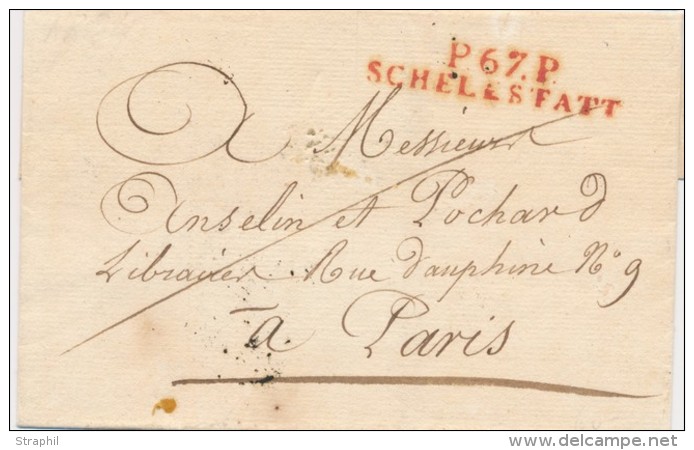 P.67.P.
SCHELESTATT
A Messieurs
Anselin et Pochard
Libraires Rue dauphine N.º 9
à Paris
Straphil
delcampe.net